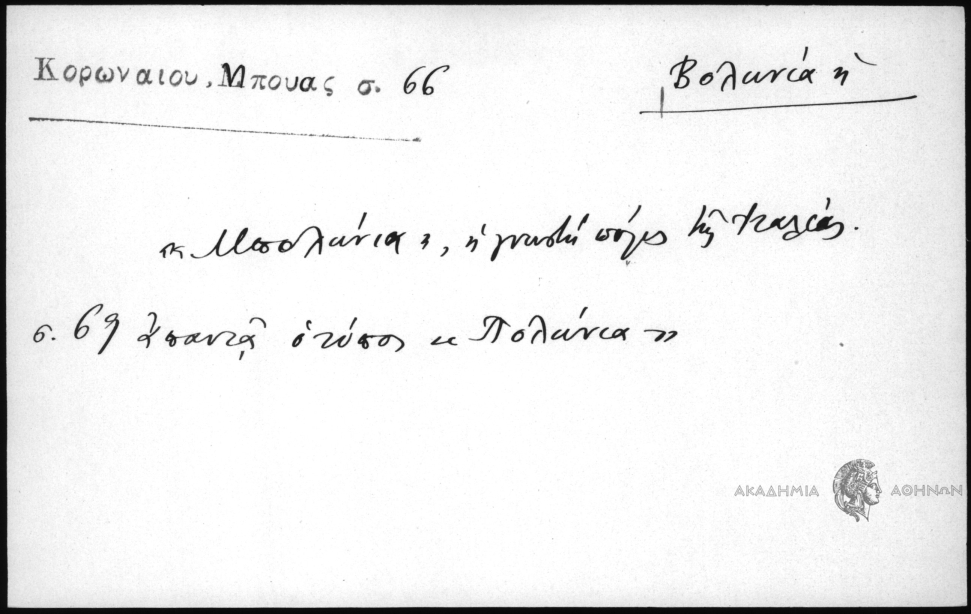 Κορωναιου, Μπουας σ. 66
Βολωνία ἡ
« Μπολώνια », ἡ γνωστὴ πόλις τῆς Ἰταλίας.
σ. 69 ἀπαντᾷ ὁ τύπος « Πολώνια »
ΑΚΑΔΗΜΙΑ ΑΘΗΝΩΝ